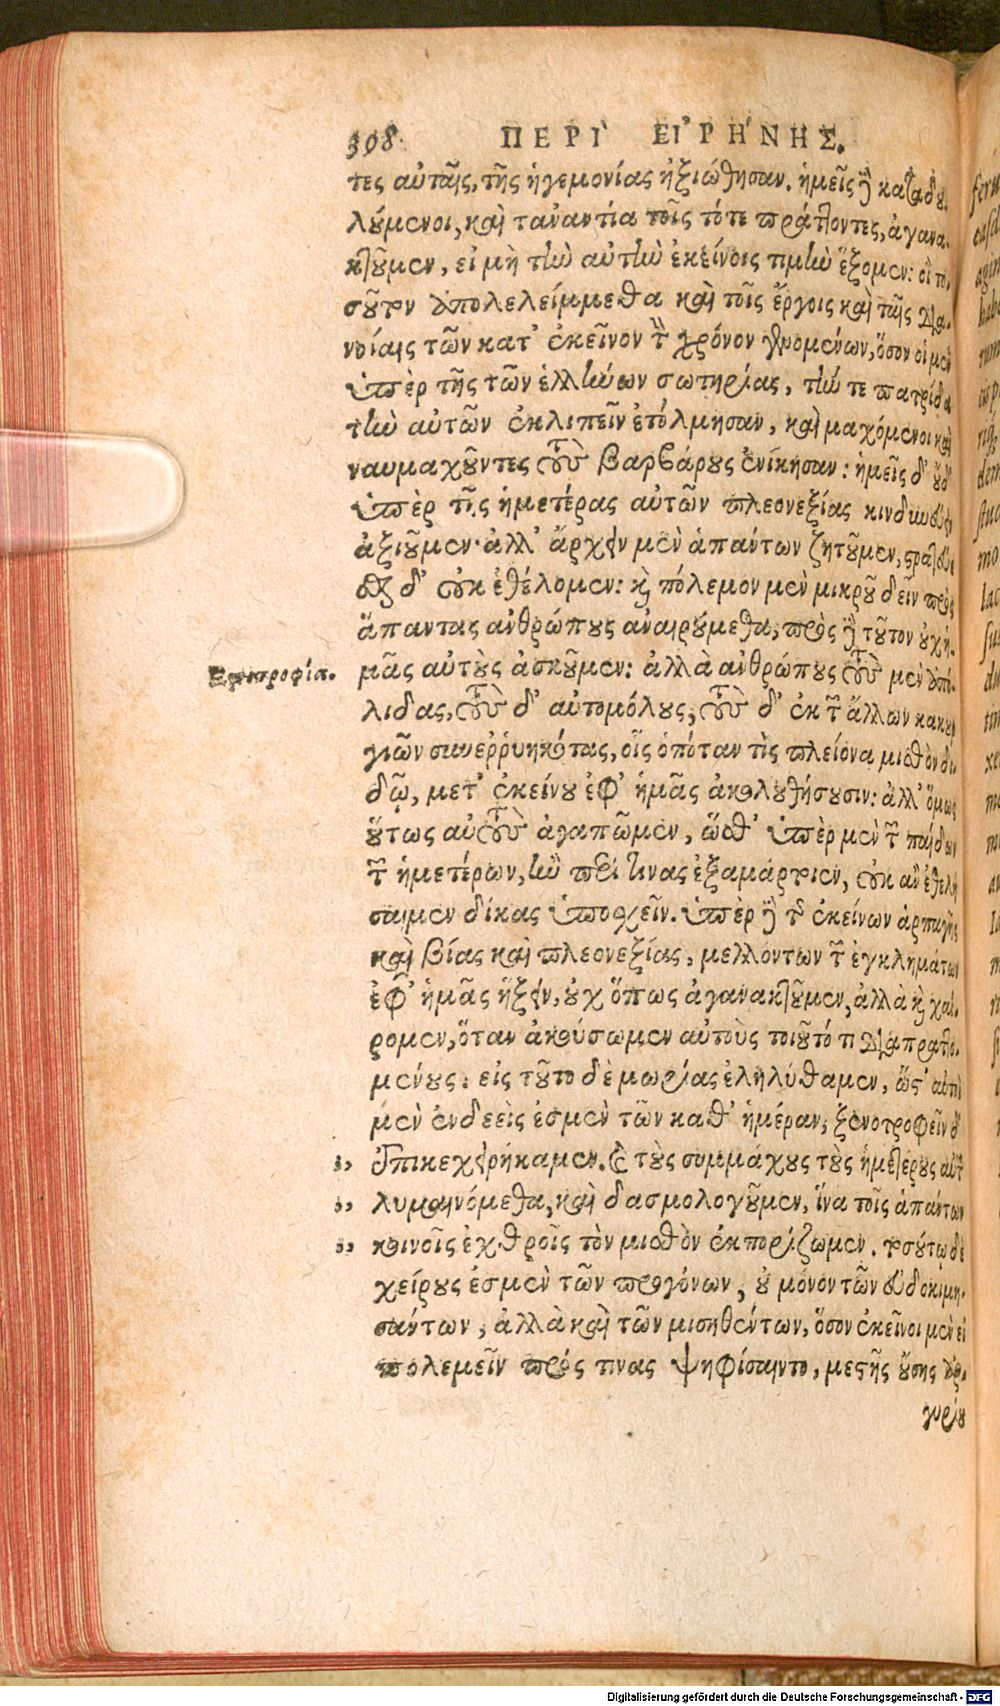 308 ΠΕΡΙ ΕΙΡΗΝΗΣ.
τες αὐταῖς, τῆς ἡγεμονίας ἠξιώθησαν. ἡμεῖς δὲ καταδου-
λούμενοι, καὶ τἀναντία τοῖς τότε πράττοντες, ἀγανα-
κτοῦμεν, εἰ μὴ τὴν αὐτὴν ἐκείνοις τιμὴν ἕξομεν: οἳ το-
σοῦτον ἀπολελείμμεθα καὶ τοῖς ἔργοις καὶ ταῖς δια-
νοίαις τῶν κατ' ἐκεῖνον τὸν χρόνον γενομένων, ὅσον οἱ μὲν
ὑπὲρ τῆς τῶν ἑλλήνων σωτηρίας, τήν τε πατρίδα
τὴν αὑτῶν ἐκλιπεῖν ἐτόλμησαν, καὶ μαχόμενοι καὶ
ναυμαχοῦντες τοὺς βαρβάρους ἐνίκησαν: ἡμεῖς δ' οὐδ'
ὑπὲρ τῆς ἡμετέρας αὐτῶν πλεονεξίας κινδυνεύειν
ἀξιοῦμεν· ἀλλ' ἄρχειν μὲν ἁπάντων ζητοῦμεν, στρατεύε
σθαι δ' οὐκ ἐθέλομεν: καὶ πόλεμον μὲν μικροῦ δεῖν πρὸς
ἅπαντας ἀνθρώπους ἀναιρούμεθα, πρὸς δὲ τοῦτον οὐχ ἡ-
μᾶς αὐτοὺς ἀσκοῦμεν: ἀλλὰ ἀνθρώπους τοὺς μὲν ἀπό-
λιδας, τοὺς δ' αὐτομόλους, τοὺς δ' ἐκ τῶν ἄλλων κακουρ
γιῶν συνερρυηκότας, οἷς ὁπόταν τὶς πλείονα μισθὸν δι-
δῷ, μετ' ἐκείνου ἐφ' ἡμᾶς ἀκολουθήσουσιν: ἀλλ' ὅμως
οὕτως αὐτοὺς ἀγαπῶμεν, ὥσθ' ὑπὲρ μὲν τῶν παίδων
τῶν ἡμετέρων, ἢν περί τινας ἐξαμάρτωσιν, οὐκ ἂν ἐθελή
σαιμεν δίκας ὑποσχεῖν. ὑπὲρ δὲ τῆς ἐκείνων ἁρπαγῆς
καὶ βίας καὶ πλεονεξίας, μελλόντων τῶν ἐγκλημάτων
ἐφ' ἡμᾶς ἥξειν, οὐχ ὅπως ἀγανακτοῦμεν, ἀλλὰ καὶ χαί-
ρομεν, ὅταν ἀκούσωμεν αὐτοὺς τοιοῦτό τι διαπραττο-
μένους. εἰς τοῦτο δὲ μωρίας ἐληλύθαμεν, ὥστ' αὐτοὶ
μὲν ἐνδεεῖς ἐσμὲν τῶν καθ' ἡμέραν, ξενοτροφεῖν δ'
,, ἐπικεχειρήκαμεν. καὶ τοὺς συμμάχους τοὺς ἡμετέρους αὐτῶν
,, λυμαινόμεθα, καὶ δασμολογοῦμεν, ἵνα τοῖς ἁπάντων
,, κοινοῖς ἐχθροῖς τὸν μισθὸν ἐκπορίζωμεν. τοσούτῳ δὲ
χείρους ἐσμὲν τῶν προγόνων, οὐ μόνον τῶν εὐδοκιμη-
σάντων, ἀλλὰ καὶ τῶν μισηθέντων, ὅσον ἐκεῖνοι μὲν εἰ
πολεμεῖν πρός τινας ψηφίσαιντο, μεστῆς οὔσης ἀρ-
γυρίου
Digitalisierung gefördert durch die Deutsche Forschungsgemeinschaft - DFG